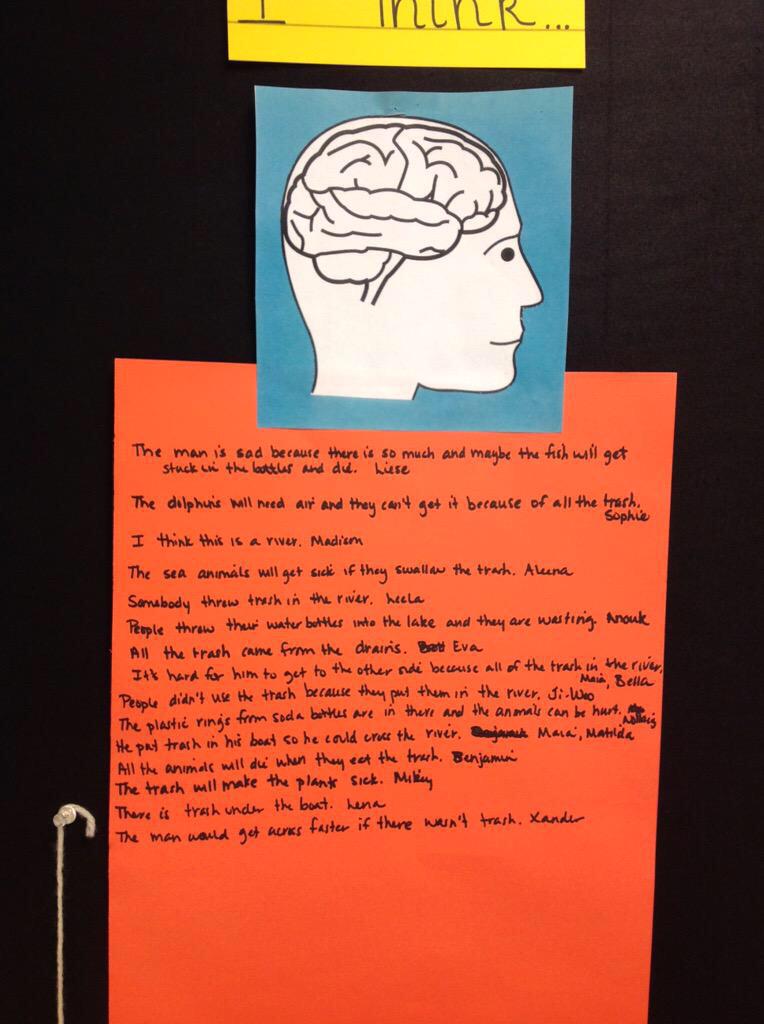 I Think...
The man is sad because there is so much and maybe the fish will get
stuck in the bottles and did. Liese
The dolphins will need air and they can't get it because of all the trash.
Sophie
I think this is a river. Madison
The sea animals will get sick if they swallow the trash. Aleena
Somebody threw trash in the river. Leela
People threw their water bottles into the lake and they are wasting. Anouk
All the trash came from the drains. Eva
It's hard for him to get to the other side because all of the trash in the river.
Maia, Bella
People didn't use the trash because they put them in the river. Ji-Woo
The plastic rings from soda bottles are in there and the animals can be hurt.
He put trash in his boat so he could cross the river. Benjamin Maia, Matilda
All the animals will die when they eat the trash. Benjamin
The trash will make the plants sick. Mikey
There is trash under the boat. Lena
The man would get across faster if there wasn't trash. Xander